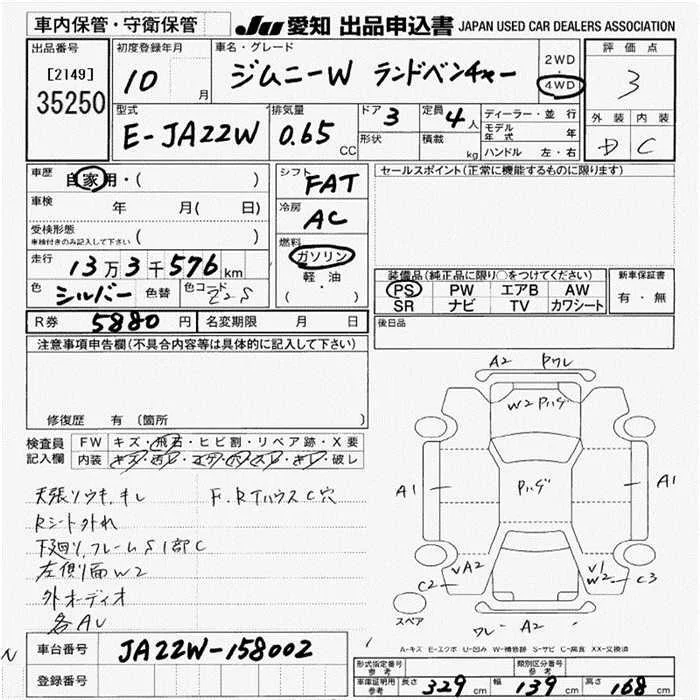 車内保管・守衛保管
JU 愛知 出品申込書 JAPAN USED CAR DEALERS ASSOCIATION
出品番号
[2149]
35250
初度登録年月
10 月
車名・グレード
ジムニーW ランドベンチャー
2WD
4WD
評価点
3
外装 内装
D C
型式
E-JA22W
排気量
0.65 CC
ドア 3
形状
定員 4人
積載 kg
ディーラー・並行
モデル年式 年
ハンドル 左・右
車歴
自家用・( )
車検 年 月( 日)
受検形態
車検付きのみ記入して下さい ( )
走行
13万3千576km
色 シルバー 色替 色コード Z2S
シフト
FAT
冷房
AC
燃料
ガソリン
軽・油
( ・ )
セールスポイント(正常に機能するものに限ります)
装備品(純正品に限り○をつけてください)
PS PW エアB AW
SR ナビ TV カワシート
新車保証書
有・無
後日品
R券 5880円 名変期限 月 日
注意事項申告欄(不具合内容等は具体的に記入して下さい)
修復歴 有 (箇所 )
検査員記入欄
FW キズ・飛石・ヒビ割・リペア跡・X要
内装 キズ・汚レ・コゲ・穴・スレ・キレ・破レ
天張ソウキ,キレ F.RTハウスC穴
Rシート外れ
下廻り,フレームS1部C
左側面W2
外オーディオ
各AU
車台番号 JA22W-158002
登録番号
A2 ワレ
W2 Pハゲ
A1 Pハゲ A1
VA2 V1
C2 W2 C3
スペア
ワレ A2
A-キズ E-エクボ U-凹み W-補修跡 S-サビ C-腐食 XX-交換済
形式指定番号 参考
類別区分番号 参考
車庫証明用 参考
長さ 329cm 幅 139cm 高さ 168cm